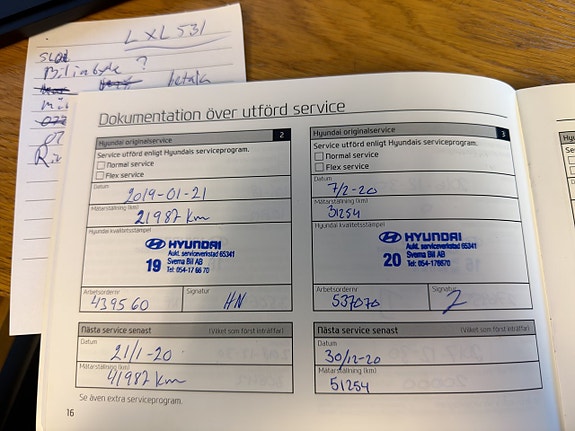 LXL531
Bilinbyte ?
betala
Dokumentation över utförd service
Hyundai originalservice 2
Service utförd enligt Hyundais serviceprogram.
Normal service
Flex service
Datum
2019-01-21
Mätarställning (km)
21987 km
Hyundai kvalitetsstämpel
HYUNDAI
Aukt. serviceverkstad 65341
19 Svema Bil AB
Tel: 054-17 66 70
Arbetsordernr Signatur
439560 HN
Nästa service senast (Vilket som först inträffar)
Datum
21/1-20
Mätarställning (km)
41987 km
Se även extra serviceprogram.
16
Hyundai originalservice 3
Service utförd enligt Hyundais serviceprogram.
Normal service
Flex service
Datum
7/2-20
Mätarställning (km)
31254
Hyundai kvalitetsstämpel
HYUNDAI
Aukt. serviceverkstad 65341
20 Svema Bil AB
Tel: 054-176670
Arbetsordernr Signatur
537070
Nästa service senast (Vilket som först inträffar)
Datum
30/12-20
Mätarställning (km)
51254